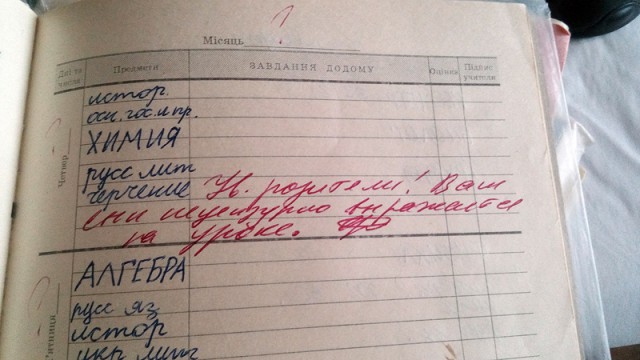 Місяць
Дні та числа Предмети ЗАВДАННЯ ДОДОМУ Оцінка Підпис учителя
Четвер
истор.
осн. гос. и пр.
ХИМИЯ
русс лит
черчение Ув. родители! Ваш
сын нецензурно выражается
на уроке.
П'ятниця
АЛГЕБРА
русс яз
истор
укр лит